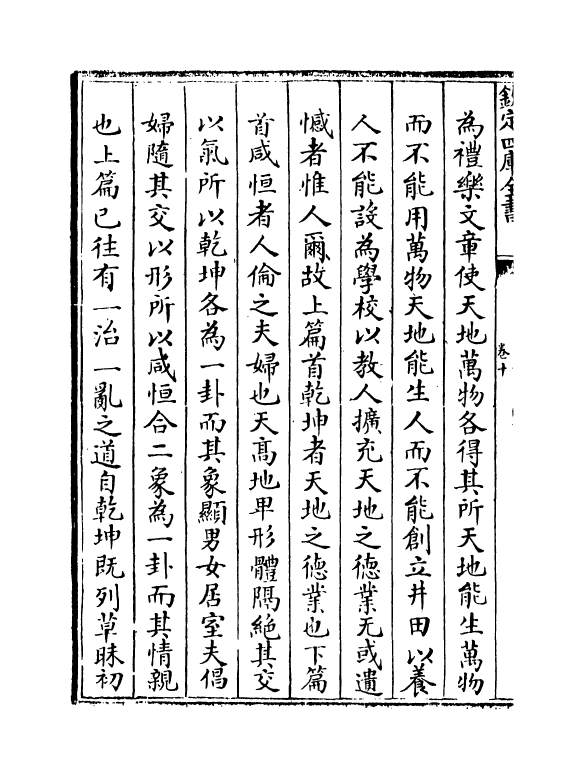 欽定四庫全書
卷十
為禮樂文章使天地萬物各得其所天地能生萬物
而不能用萬物天地能生人而不能創立井田以養
人不能設為學校以教人擴充天地之德業无或遺
憾者惟人爾故上篇首乾坤者天地之德業也下篇
首咸恒者人倫之夫婦也天髙地畀形體隔絶其交
以氣所以乾坤各為一卦而其象顯男女居室夫倡
婦隨其交以形所以咸恒合二象為一卦而其情親
也上篇已往有一治一亂之道自乾坤既列草昧初